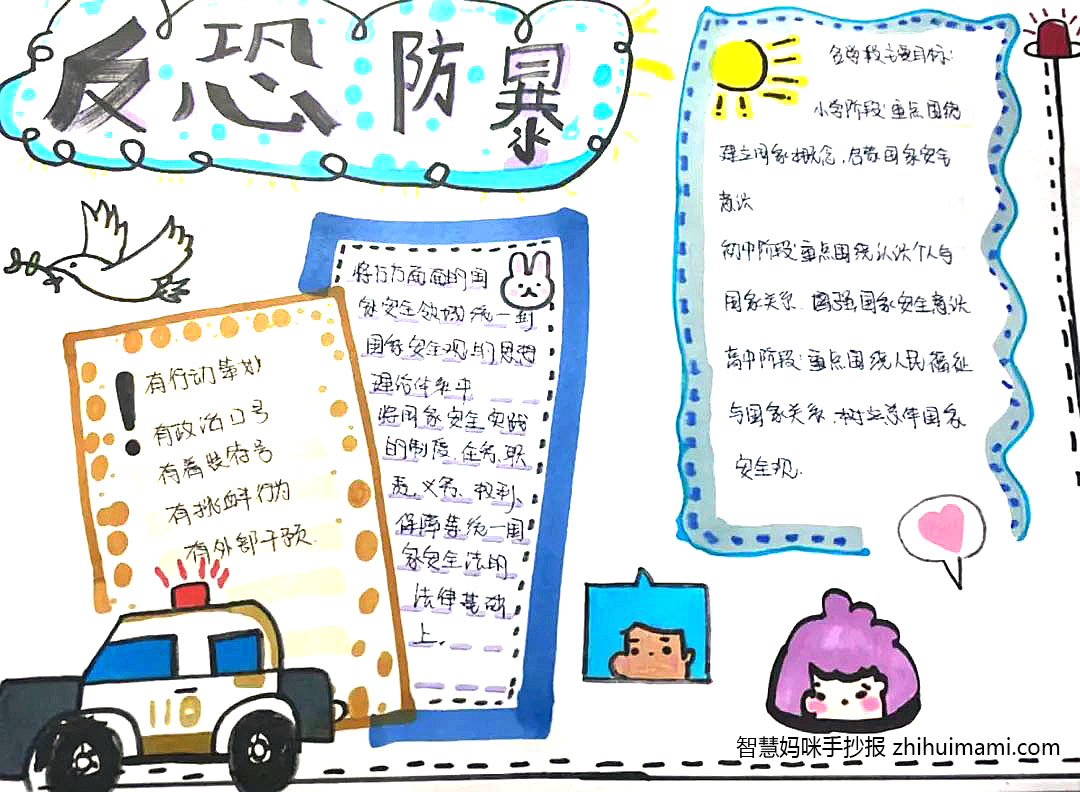 反恐防暴
有行动策划
有政治口号
有着装符号
有挑衅行为
有外部干预.
将方方面面的国
家安全领域统一到
国家安全观的思想
理论体系中
将国家安全实践
的制度、任务、职
责、义务、权利、
保障等统一国
家安全法的
法律基础
上.
各学段主要目标:
小学阶段:重点围绕
建立国家概念,启蒙国家安全
意识
初中阶段:重点围绕认识个人与
国家关系.增强国家安全意识
高中阶段:重点围绕人民福祉
与国家关系.树立总体国家
安全观.
110
智慧妈咪手抄报 zhihuimami.com